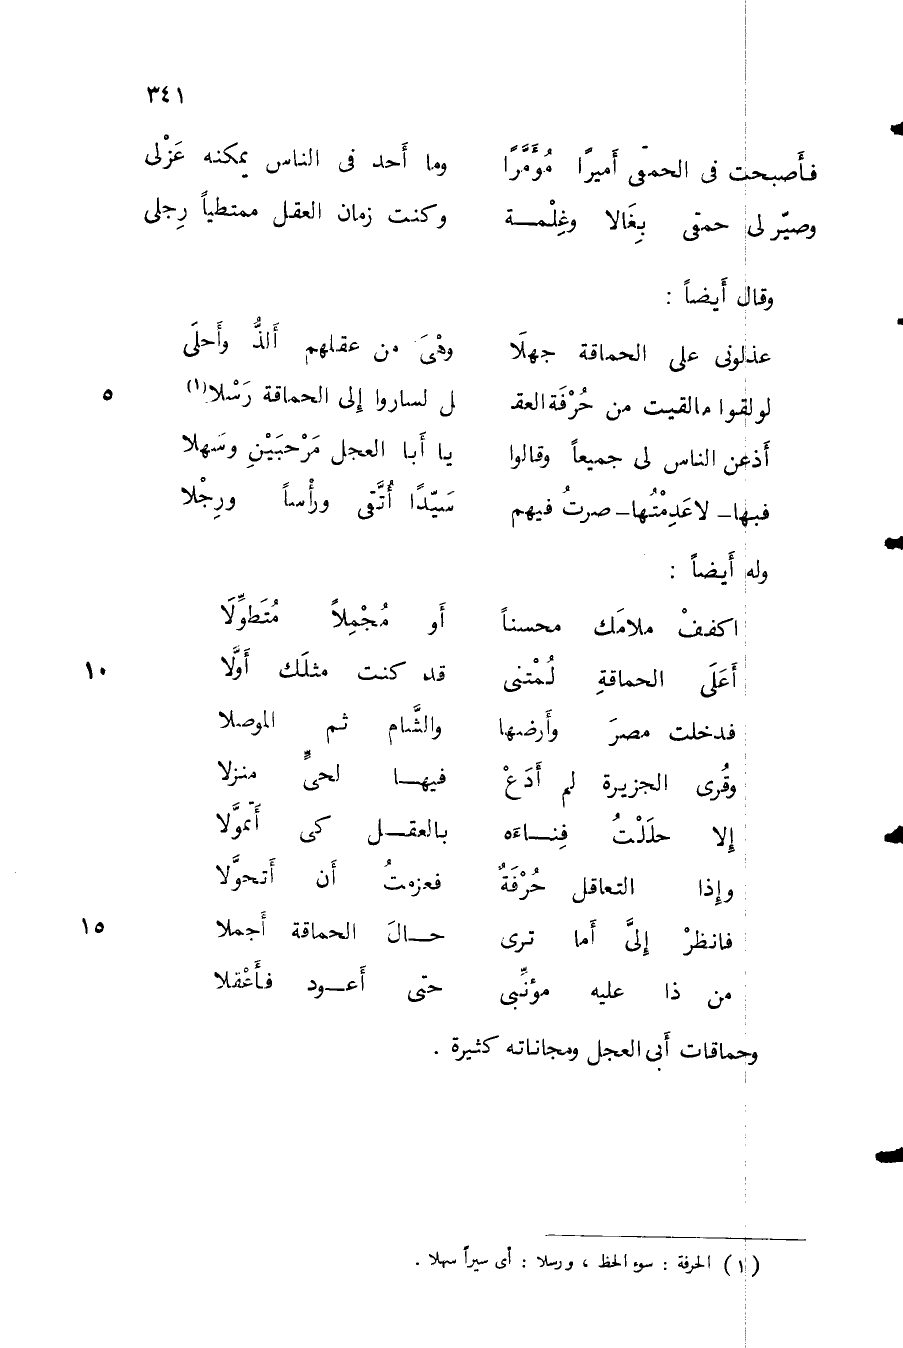 ٣٤١
فأصبحت فى الحمقى أميرًا مُؤَمَّرًا وما أَحد فى الناس يمكنه عَزْلى
وصيّر لى حمقى بِغَالا وغِلْمـــة وكنت زمان العقل ممتطياً رِجلى
وقال أَيضاً :
عذلونى على الحماقة جهلَا وهْىَ من عقلهم أَلذُّ وأَحلَى
لو لقوا مالقيت من حُرْفَة العقـ ل لساروا إلى الحماقة رَسْلا(١) ٥
أَذعن الناس لى جميعاً وقالوا يا أَبا العجل مَرْحبَيْنِ وسَهلا
فبها– لاعَدِمْتُها– صرتُ فيهم سَيّدًا أُتَّقى ورأْساً ورِجْلا
وله أَيضاً :
اكففْ ملامَك محسناً أَو مُجْمِلاً مُتَطوِّلَا
أَعَلَى الحماقةِ لُمْتنى قد كنت مثلَك أَوَّلَا ١٠
فدخلت مصرَ وأَرضها والشَّام ثم الموصلا
وقُرى الجزيرة لم أَدَعْ فيهـــا لحىٍّ منزلا
إلا حلَلْتُ فِنـــاءَه بالعقـــل كى أَتموَّلا
وإذا التعاقل حُرْفَةٌ فعزمتُ أَن أَتحوَّلا
فانظرْ إلىَّ أَما ترى حـــالَ الحماقة أَجملا ١٥
من ذا عليه مؤنِّبى حتى أَعـــود فأَعْقلا
وحماقات أَبى العجل ومجاناته كثيرة .
(١) الحرفة : سوء الحظ ، ورسلا : أى سيراً سهلا .